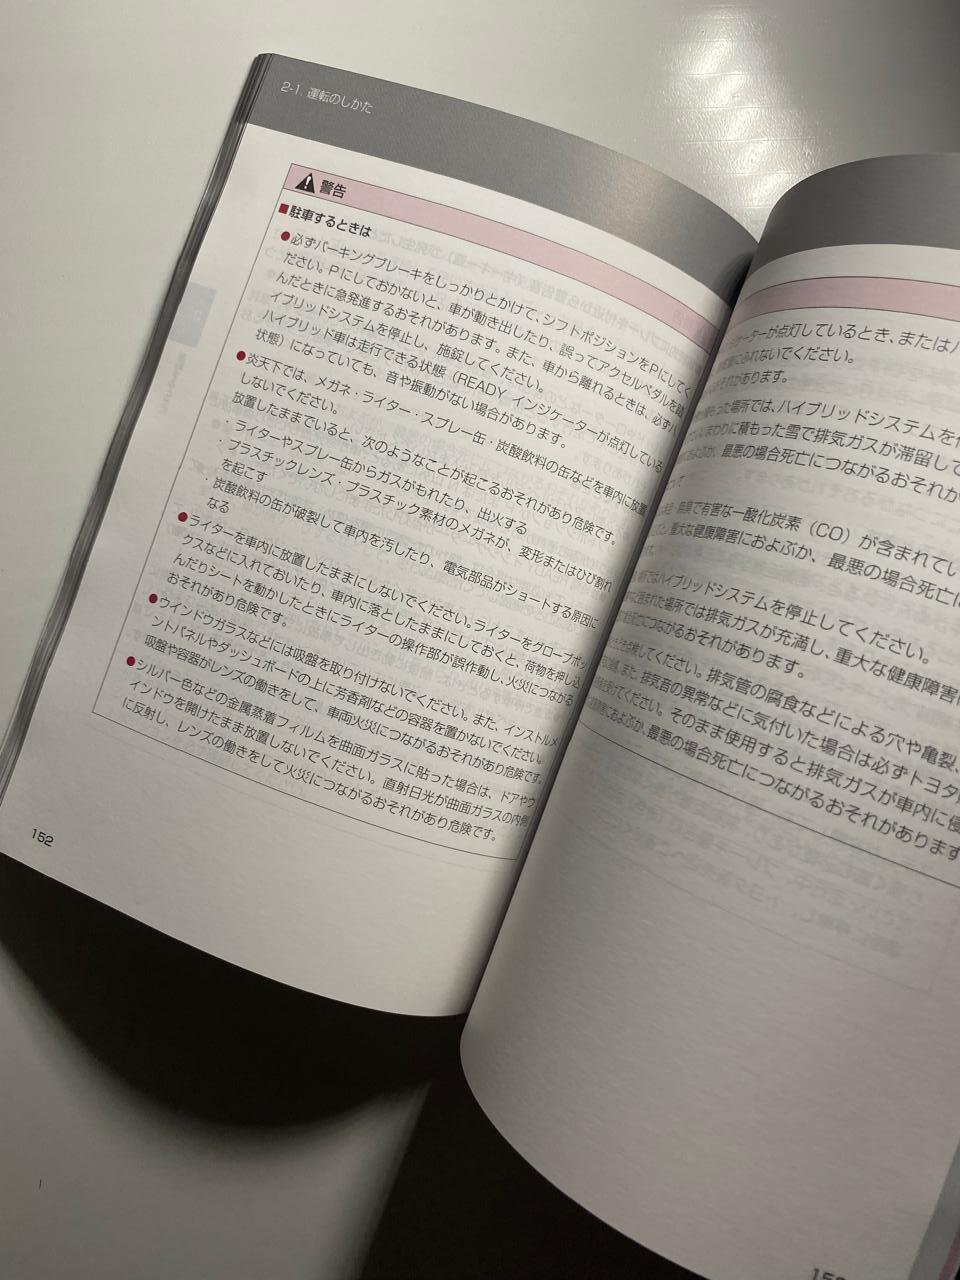 2-1. 運転のしかた
警告
■駐車するときは
●必ずパーキングブレーキをしっかりとかけて、シフトポジションをPにしてく
ださい。Pにしておかないと、車が動き出したり、誤ってアクセルペダルを踏
んだときに急発進するおそれがあります。また、車から離れるときは、必ずハ
イブリッドシステムを停止し、施錠してください。
ハイブリッド車は走行できる状態（READY インジケーターが点灯している
状態）になっていても、音や振動がない場合があります。
●炎天下では、メガネ・ライター・スプレー缶・炭酸飲料の缶などを車内に放置
しないでください。
放置したままでいると、次のようなことが起こるおそれがあり危険です。
・ライターやスプレー缶からガスがもれたり、出火する
・プラスチックレンズ・プラスチック素材のメガネが、変形またはひび割れ
を起こす
・炭酸飲料の缶が破裂して車内を汚したり、電気部品がショートする原因に
なる
●ライターを車内に放置したままにしないでください。ライターをグローブボッ
クスなどに入れておいたり、車内に落としたままにしておくと、荷物を押し込
んだりシートを動かしたときにライターの操作部が誤作動し、火災につながる
おそれがあり危険です。
●ウインドウガラスなどには吸盤を取り付けないでください。また、インストルメ
ントパネルやダッシュボードの上に芳香剤などの容器を置かないでください。
吸盤や容器がレンズの働きをして、車両火災につながるおそれがあり危険です。
●シルバー色などの金属蒸着フィルムを曲面ガラスに貼った場合は、ドアやウ
インドウを開けたまま放置しないでください。直射日光が曲面ガラスの内側
に反射し、レンズの働きをして火災につながるおそれがあり危険です。
152
ケーターが点灯しているとき、またはハ
ふれないでください。
それがあります。
場所では、ハイブリッドシステムを
まわりに積もった雪で排気ガスが滞留して
およぶか、最悪の場合死亡につながるおそれが
無臭で有害な一酸化炭素（CO）が含まれてい
重大な健康障害におよぶか、最悪の場合死亡に
ハイブリッドシステムを停止してください。
囲まれた場所では排気ガスが充満し、重大な健康障害
死亡につながるおそれがあります。
点検してください。排気管の腐食などによる穴や亀裂、
また、排気音の異常などに気付いた場合は必ずトヨタ
受けてください。そのまま使用すると排気ガスが車内に侵
およぶか、最悪の場合死亡につながるおそれがあります